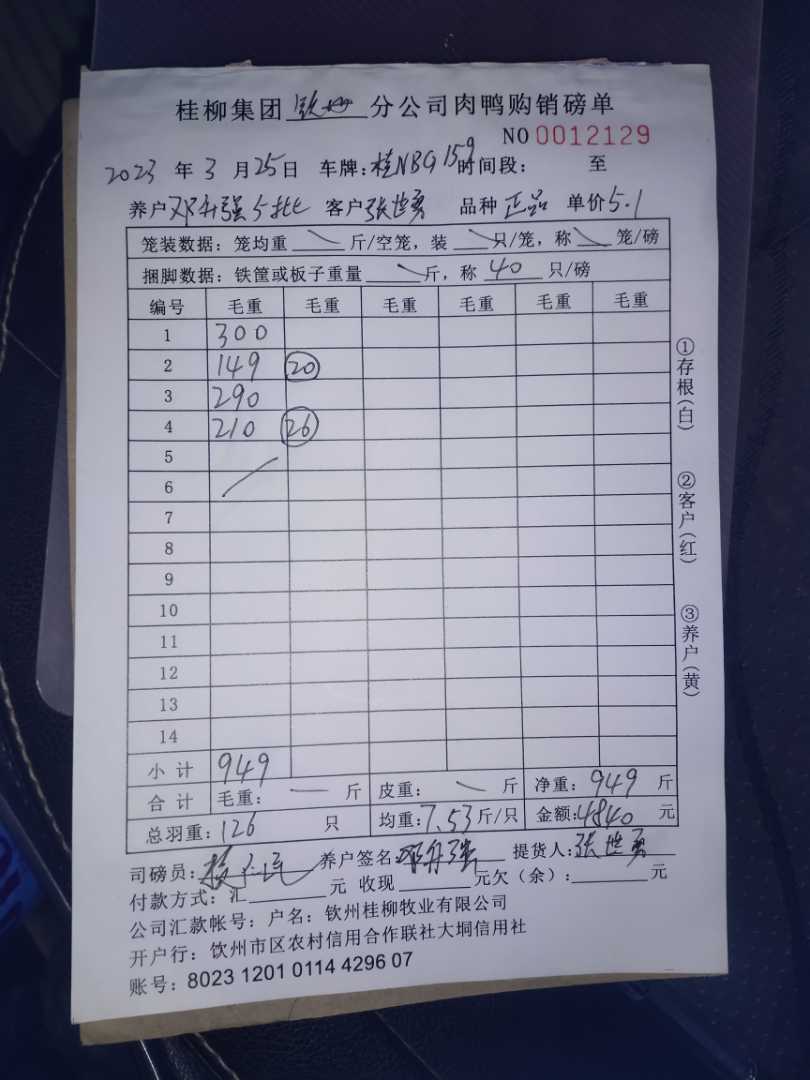 桂柳集团 钦州 分公司肉鸭购销磅单
NO 0012129
2023 年 3 月 25 日 车牌：桂NBG159 时间段： 至
养户 邓升强5批 客户 张世勇 品种 正品 单价 5.1
笼装数据：笼均重 斤/空笼，装 只/笼，称 笼/磅
捆脚数据：铁筐或板子重量 斤，称 40 只/磅
编号 毛重 毛重 毛重 毛重 毛重 毛重
1 300
2 149 20
3 290
4 210 26
5
6
7
8
9
10
11
12
13
14
小计 949
合计 毛重： 斤 皮重： 斤 净重：949 斤
总羽重：126 只 均重：7.53 斤/只 金额：4840 元
司磅员： 养户签名：邓升强 提货人：张世勇
付款方式：汇 元 收现 元欠（余）： 元
公司汇款帐号：户名：钦州桂柳牧业有限公司
开户行：钦州市区农村信用合作联社大垌信用社
账号：8023 1201 0114 4296 07
①存根（白）
②客户（红）
③养户（黄）